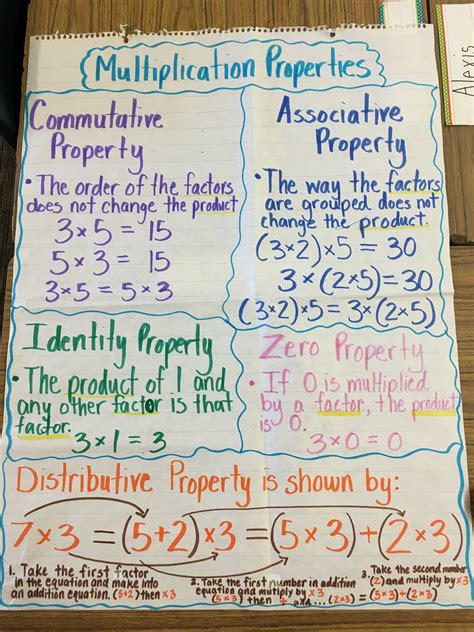 Multiplication Properties
Commutative
Property
• The order of the factors
does not change the product
3 × 5 = 15
5 × 3 = 15
3×5 = 5×3
Associative
Property
• The way the factors
are grouped does not
change the product.
(3×2)×5 = 30
3×(2×5)=30
(3×2)×5=3×(2×5)
Identity Property
• The product of 1 and
any other factor is that
factor.
3×1=3
Zero Property
• If 0 is multiplied
by a factor, the product
is 0.
3×0=0
Distributive Property is shown by:
7×3 = (5+2)×3 = (5×3)+(2×3)
1. Take the first factor
in the equation and make into
an addition equation. (5+2) then ×3
2. Take the first number in addition
equation and multiply by ×3
(5×3) then and ... (2×3)
3. Take the second number
(2) and multiply by ×3
= (5×3)+(2×3)
Alexis